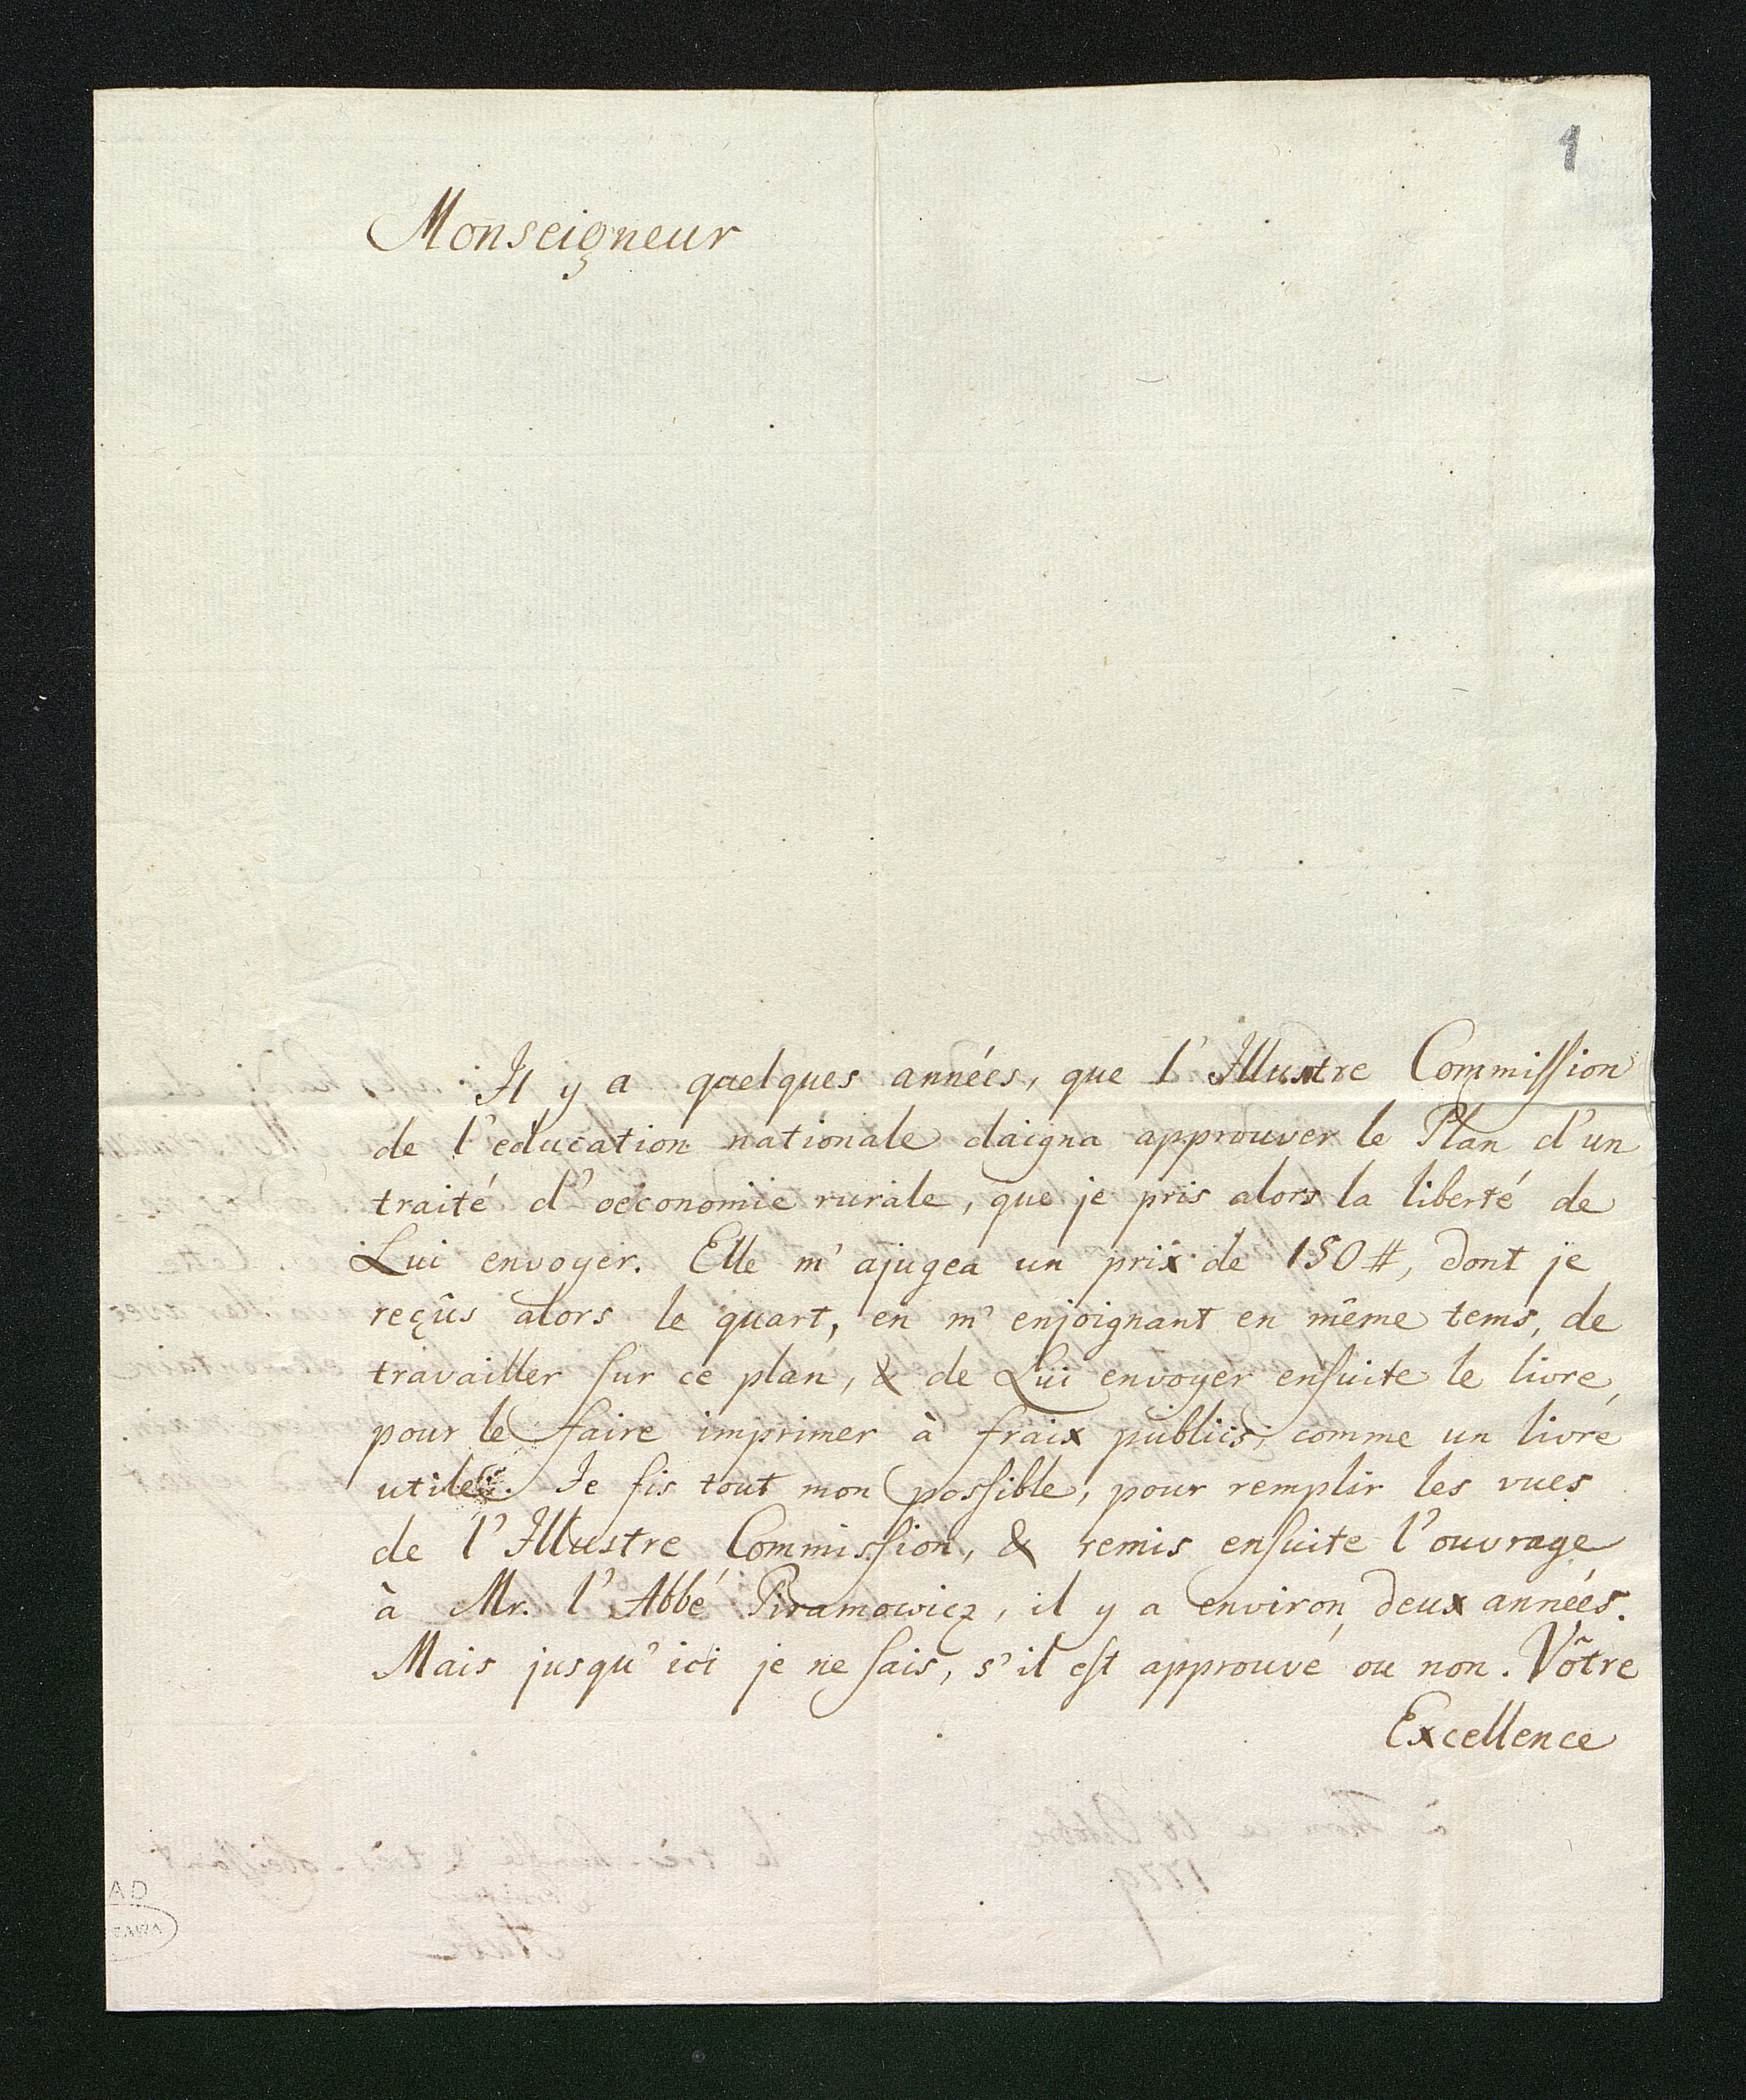 1
Monseigneur
Il y a quelques années, que l'Illustre Commiſſion
de l'education nationale daigna approuver le Plan d'un
traité d'oeconomie rurale, que je pris alors la liberté de
Lui envoyer. Elle m'ajugea un prix de 150 #, dont je
reçûs alors le quart, en m'enjoignant en même tems, de
travailler ſur ce plan, & de Lui envoyer enſuite le livre,
pour le faire imprimer à fraix publics, comme un livre
utile. Je fis tout mon poſſible, pour remplir les vues
de l'Illustre Commisſion, & remis enſuite l'ouvrage
à Mr. l'Abbé Piramowicz, il y a environ deux années.
Mais jusqu'ici je ne ſais, s'il eſt approuvé ou non. Vôtre
Excellence
AD